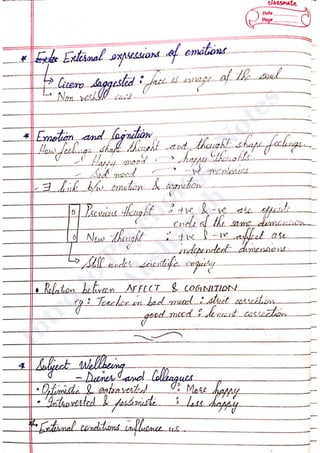 classmate
Date
Page
* External expressions of emotions
↳ Cicero suggested : face is image of the soul
↳ Non verbal cues
* Emotion and Cognition
How feelings shape thought and thought shape feelings.
- Happy mood → happy thoughts
- Sad mood → -ve memories
- ∃ link b/w emotion & cognition
□ Previous thought : +ve & -ve are opposite
ends of the same dimension
□ New thought : +ve & -ve affect are
independent dimensions
↳ Still under scientific enquiry
• Relation between AFFECT & COGNITION
eg : Teacher in bad mood : strict correction
good mood : lenient correction
* Subject Wellbeing
- Diener and Colleagues
• Optimistic & extraverted : More happy
• Introverted & pessimistic : less happy
* External conditions influence us.